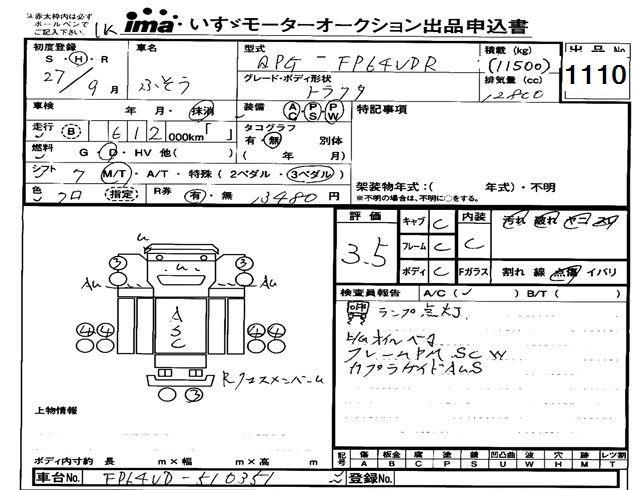 注.赤太枠内は必ず
ボールペンで
ご記入下さい。
ima いすゞモーターオークション出品申込書
初度登録 車名 型式 積載(kg) 出品No
S・H・R QPG-FP64VDR (11500)
27/9月 ふそう グレード・ボディ形状 排気量(cc) 1110
トラクタ 12800
車検 年 月・抹消 装備 AC PS PW 特記事項
走行 B 612 000km「 」 タコグラフ
有・無 別体
燃料 G・D・HV 他( ) ( 年 月)
シフト 7 M/T・A/T・特殊(2ペダル・3ペダル)
架装物年式:( 年式)・不明
※不明の場合は、不明に○をする。
色 クロ 指定 R券 有・無 13480円
評価 キャブ C 内装 汚れ 破れ ヤコ スリ
3.5 フレーム C C
ボディ C Fガラス 割れ 線 点傷 イバリ
検査員報告 A/C( ✓ ) B/T( )
ランプ点灯
E/Gオイルベタ
フレームPM SCW
カプラガイドAUS
U
3 3
AU U AU
A
S
C
4 4 4 4
Rクロスメンバーム
3
上物情報
ボディ内寸約 長 m×幅 m×高 m
記号 傷A 板金B 腐C 塗P 錆S 凹凸曲U 波W 穴H 跡M レツ割T
車台No. FP64VD-510351 登録No.